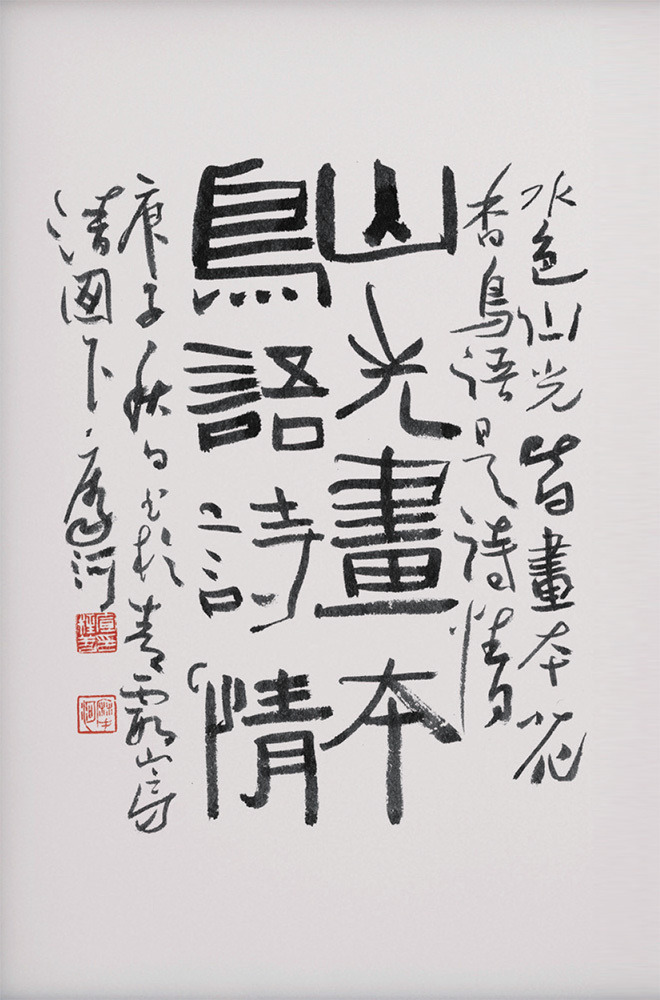 水色仙光皆畫本花
香鳥語是詩情
山光畫本
鳥語詩情
庚子秋书於青霞山房
清下河